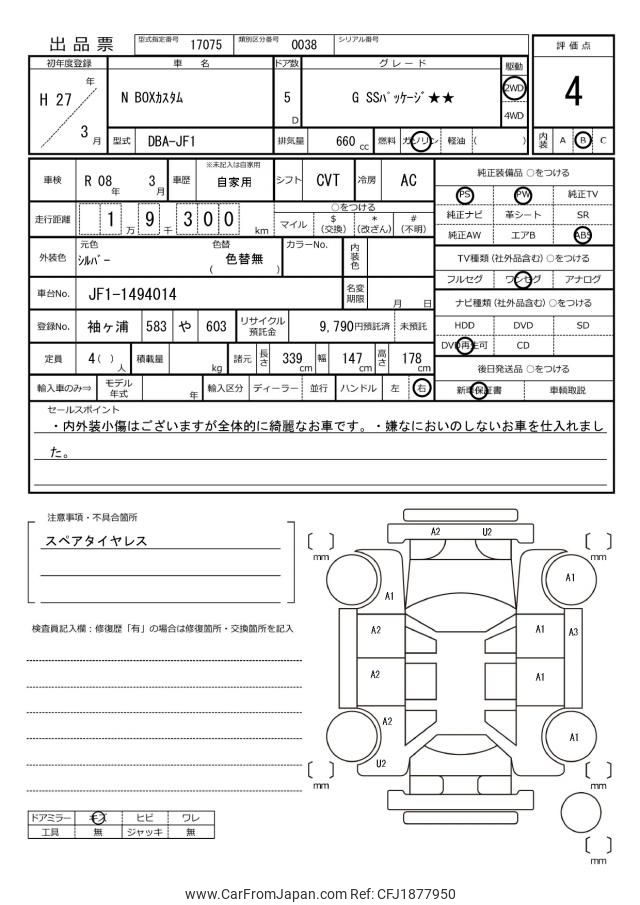 出品票 型式指定番号 17075 類別区分番号 0038 シリアル番号
初年度登録 車 名 ドア数 グレード 駆動 評価点
H 27 年 3 月 N BOXカスタム 5 D G SSパッケージ★★ 2WD 4WD 4
型式 DBA-JF1 排気量 660 cc 燃料 ガソリン 軽油 ( ) 内装 A B C
車検 R 08 年 3 月 車歴 ※未記入は自家用 自家用 シフト CVT 冷房 AC 純正装備品 ○をつける
PS PW 純正TV
走行距離 1 万 9 千 3 0 0 km ○をつける マイル $ (交換) * (改ざん) # (不明) 純正ナビ 革シート SR
純正AW エアB ABS
外装色 元色 シルバー 色替 ( 色替無 ) カラーNo. 内装色 TV種類 (社外品含む) ○をつける
フルセグ ワンセグ アナログ
車台No. JF1-1494014 名変期限 月 日 ナビ種類 (社外品含む) ○をつける
登録No. 袖ヶ浦 583 や 603 リサイクル預託金 9,790円預託済 未預託 HDD DVD SD
DVD再生可 CD
定員 4 ( ) 人 積載量 kg 諸元 長さ 339 cm 幅 147 cm 高さ 178 cm 後日発送品 ○をつける
輸入車のみ⇒ モデル年式 年 輸入区分 ディーラー 並行 ハンドル 左 右 新車保証書 車輌取説
セールスポイント
・内外装小傷はございますが全体的に綺麗なお車です。・嫌なにおいのしないお車を仕入れまし
た。
注意事項・不具合箇所
スペアタイヤレス
検査員記入欄：修復歴「有」の場合は修復箇所・交換箇所を記入
A2 U2
mm mm
A1 A1
A2 A1 A3
A2 A1
A2 A1
U2
mm mm
mm
ドアミラー キズ ヒビ ワレ
工具 無 ジャッキ 無
www.CarFromJapan.com Ref: CFJ1877950